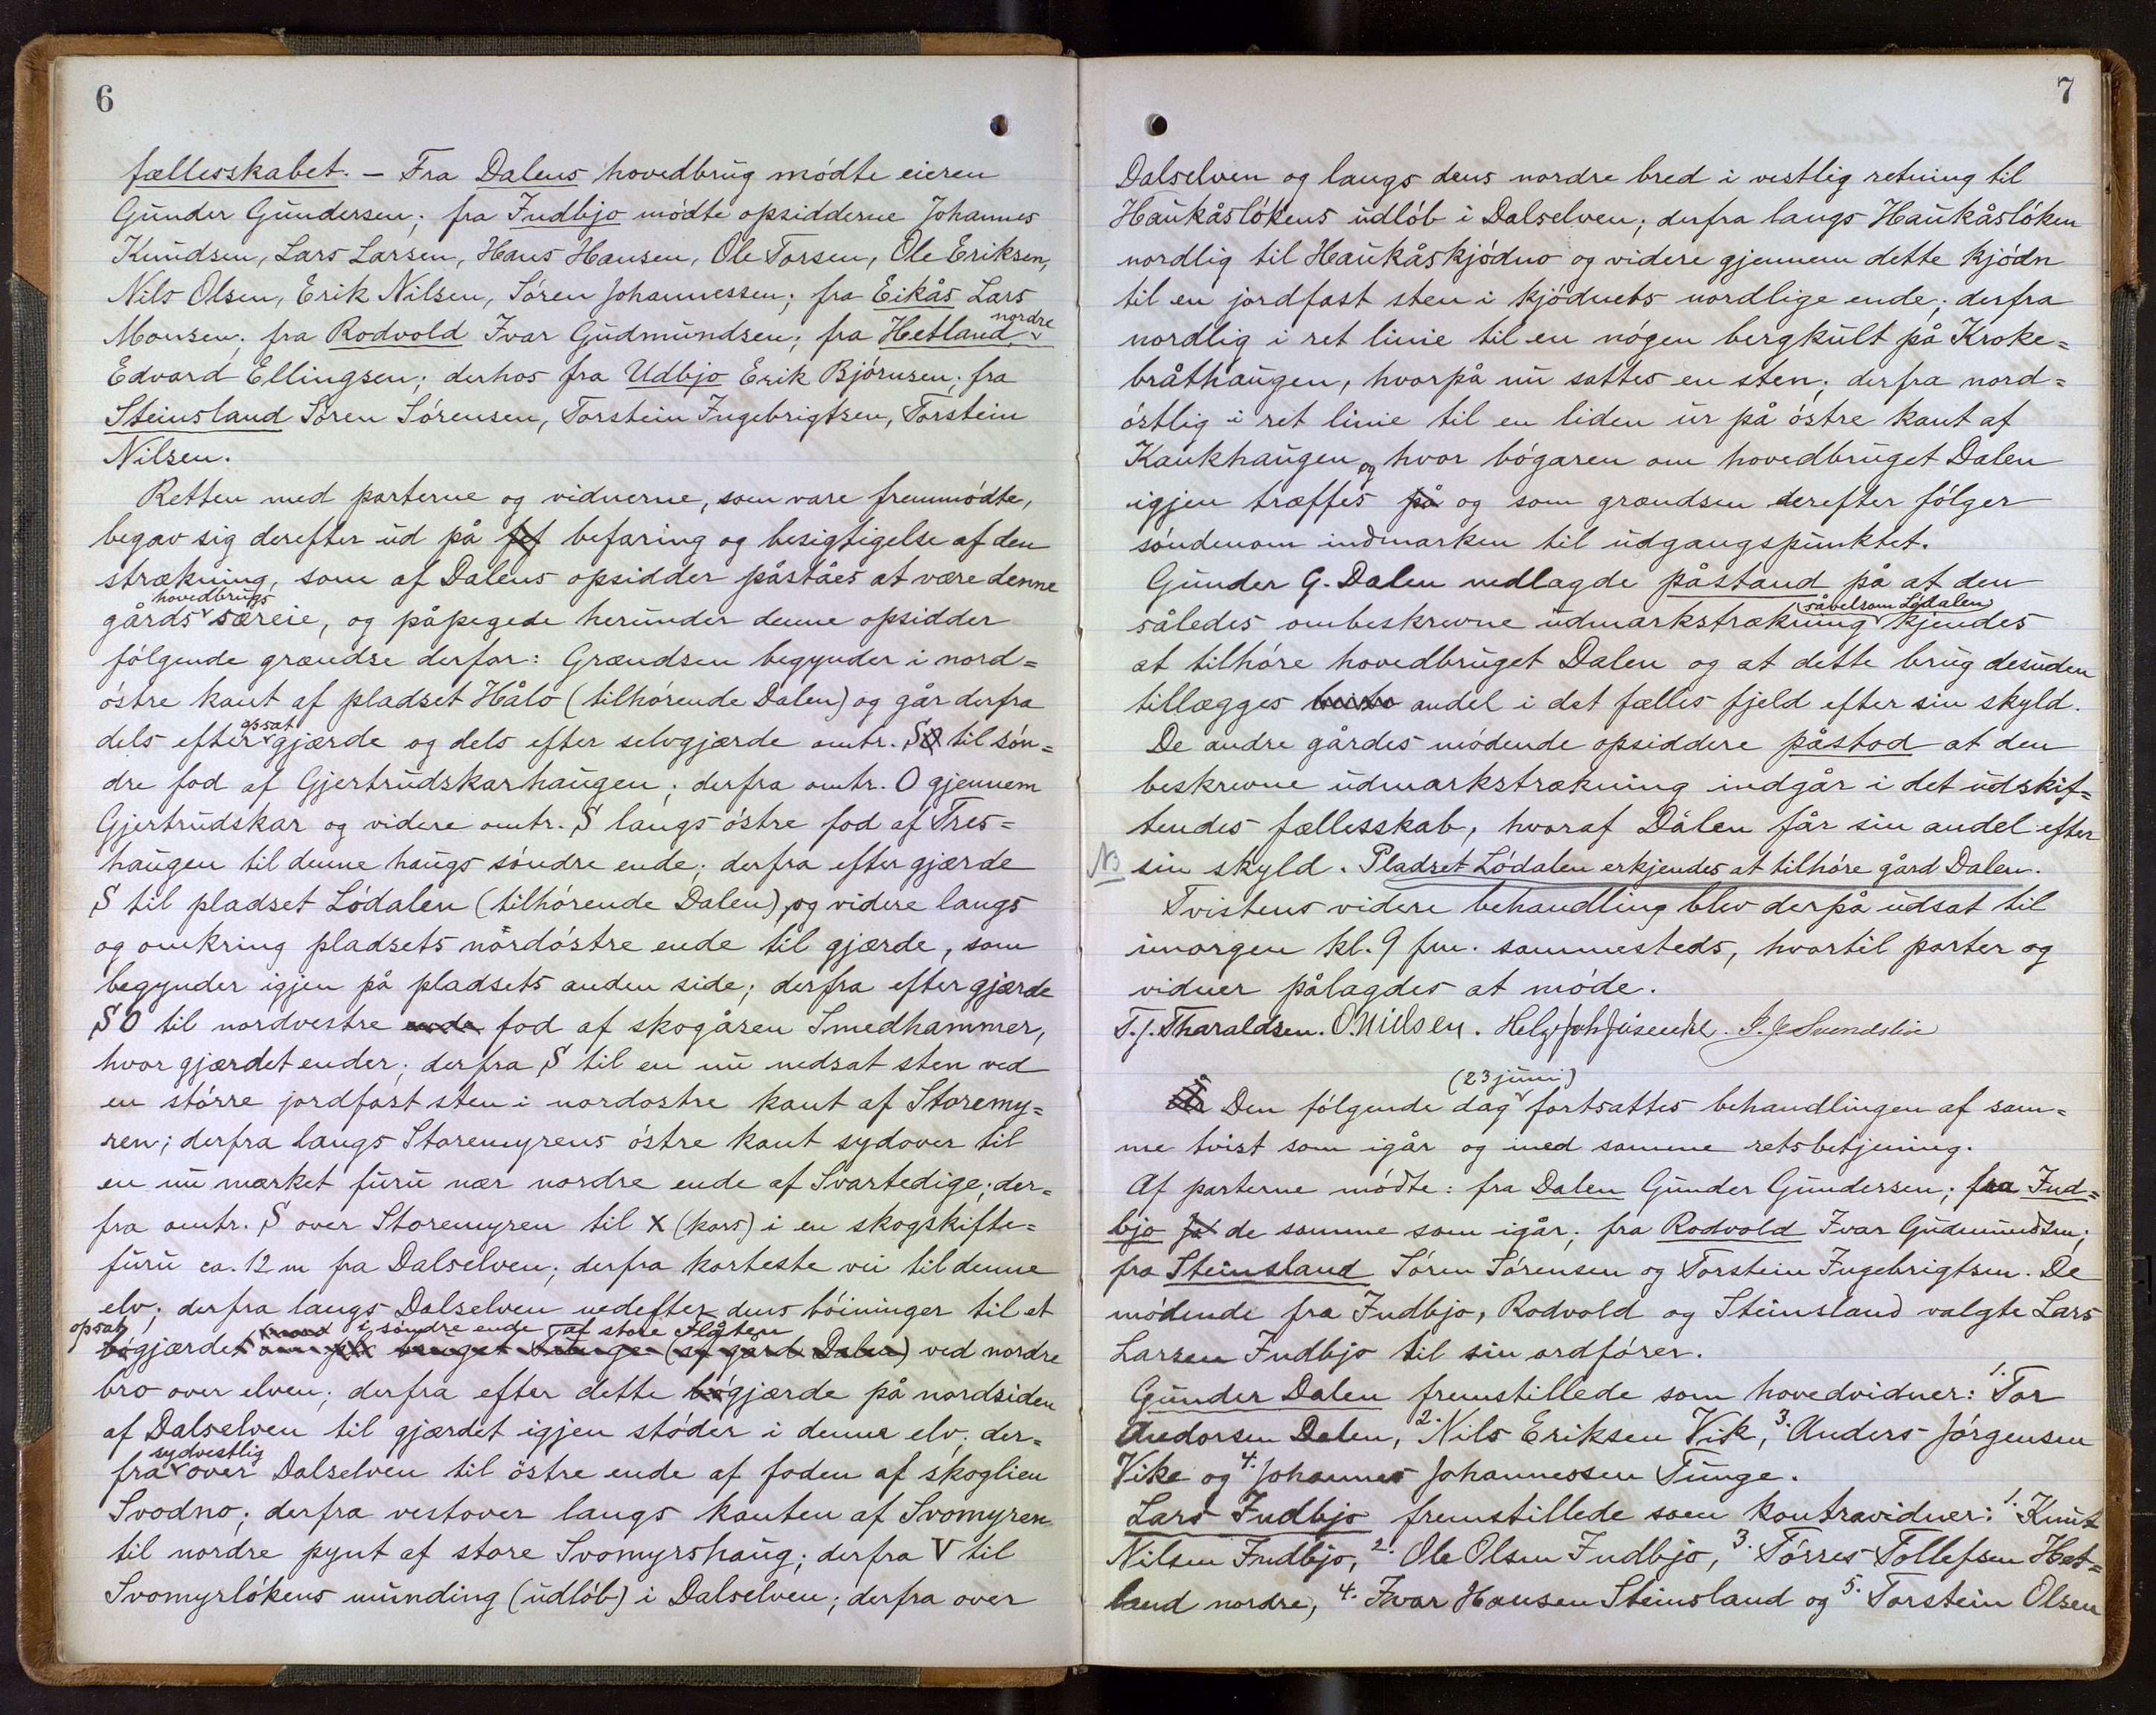 6
fællesskabet. – Fra Dalens hovedbrug módte eieren
Gunder Gundersen; fra Indbjo módte opsidderne Johannes
Knudsen, Lars Larsen, Hans Hansen, Ole Torsen, Ole Eriksen,
Nils Olsen, Erik Nilsen, Sóren Johannessen; fra Eikås Lars
Monsen; fra Rodvold Ivar Gudmundsen; fra Hetland nordre
Edvard Ellingsen; derhos fra Udbjo Erik Bjórnsen; fra
Steinsland Sóren Sórensen, Torstein Ingebrigtsen, Torstein
Nilsen.
Retten med parterne og vidnerne, som vare fremmódte,
begav sig derefter ud på befaring og besigtigelse af den
strækning, som af Dalens opsidder påståes at være denne
gårds hovedbrugs særeie, og påpegede herunder denne opsidder
fólgende grændse derfor: Grændsen begynder i nord=
óstre kant af pladset Hålo (tilhórende Dalen) og går derfra
dels efter opsat gjærde og dels efter selvgjærde omtr. S til són=
dre fod af Gjertrudskarhaugen; derfra omtr. O gjennem
Gjertrudskar og videre omtr. S langs óstre fod af Tres=
haugen til denne haugs sóndre ende; derfra efter gjærde
S til pladset Lódalen (tilhórende Dalen), og videre langs
og omkring pladsets nordóstre ende til gjærde, som
begynder igjen på pladsets anden side; derfra efter gjærde
SO til nordvestre ende fod af skogåren Smedhammer,
hvor gjærdet ender; derfra S til en nu nedsat sten ved
en stórre jordfast sten i nordostre kant af Storemy=
ren; derfra langs Storemyrens óstre kant sydover til
en nu mærket furu nær nordre ende af Svartedige; der=
fra omtr. S over Storemyren til X (kors) i en skogskifte=
furu ca. 12 m fra Dalselven; derfra korteste vei til denne
elv; derfra langs Dalselven nedefter dens bóininger til et
opsat gjærde i sóndre ende af store Flåten ved nordre
bro over elven; derfra efter dette gjærde på nordsiden
af Dalselven til gjærdet igjen stóder i denne elv; der=
fra sydvestlig over Dalselven til óstre ende af foden af skoglien
Svodno; derfra vestover langs kanten af Svomyren
til nordre pynt af store Svomyrshaug; derfra V til
Svomyrlókens munding (udlób) i Dalselven; derfra over
7
Dalselven og langs dens nordre bred i vestlig retning til
Haukåslókens udlób i Dalselven; derfra langs Haukåslóken
nordlig til Haukåskjódno og videre gjennem dette kjódn
til en jordfast sten i kjódnets nordlige ende; derfra
nordlig i ret linie til en nógen bergkult på Kroke=
bråthaugen, hvorpå nu sattes en sten; derfra nord=
óstlig i ret linie til en liden ur på óstre kant af
Kaukhaugen, og hvor bógaren om hovedbruget Dalen
igjen træffes på og som grændsen derefter fólger
sóndenom indmarken til udgangspunktet.
Gunder G. Dalen nedlagde påstand på at den
således ombeskrevne udmarkstrækning (såvelsom Lódalen) kjendes
at tilhóre hovedbruget Dalen og at dette brug desuden
tillægges andel i det fælles fjeld efter sin skyld.
De andre gårdes módende opsiddere påstod at den
beskrevne udmarkstrækning indgår i det udskif=
tendes fællesskab, hvoraf Dalen får sin andel efter
NB sin skyld. Pladset Lódalen erkjendes at tilhóre gård Dalen.
Tvistens videre behandling blev derpå udsat til
imorgen kl. 9 fm. sammesteds, hvortil parter og
vidner pålagdes at móde.
T. J. Tharaldsen. O. Nielsen. J. J. Svendsbøe
Den fólgende dag (23 juni) fortsattes behandlingen af sam=
me tvist som igår og med samme retsbetjening.
Af parterne módte: fra Dalen Gunder Gundersen; fra Ind=
bjo de samme som igår; fra Rodvold Ivar Gudmundsen;
fra Steinsland Sóren Sórensen og Torstein Ingebrigtsen. De
módende fra Indbjo, Rodvold og Steinsland valgte Lars
Larsen Indbjo til sin ordfórer.
Gunder Dalen fremstillede som hovedvidner: 1. Tor
Andorsen Dalen, 2. Nils Eriksen Vik, 3. Anders Jórgensen
Vike og 4. Johannes Johannessen Tunge.
Lars Indbjo fremstillede som kontravidner: 1. Knut
Nilsen Indbjo, 2. Ole Olsen Indbjo, 3. Tórres Tollefsen Het=
land nordre, 4. Ivar Hansen Steinsland og 5. Torstein Olsen